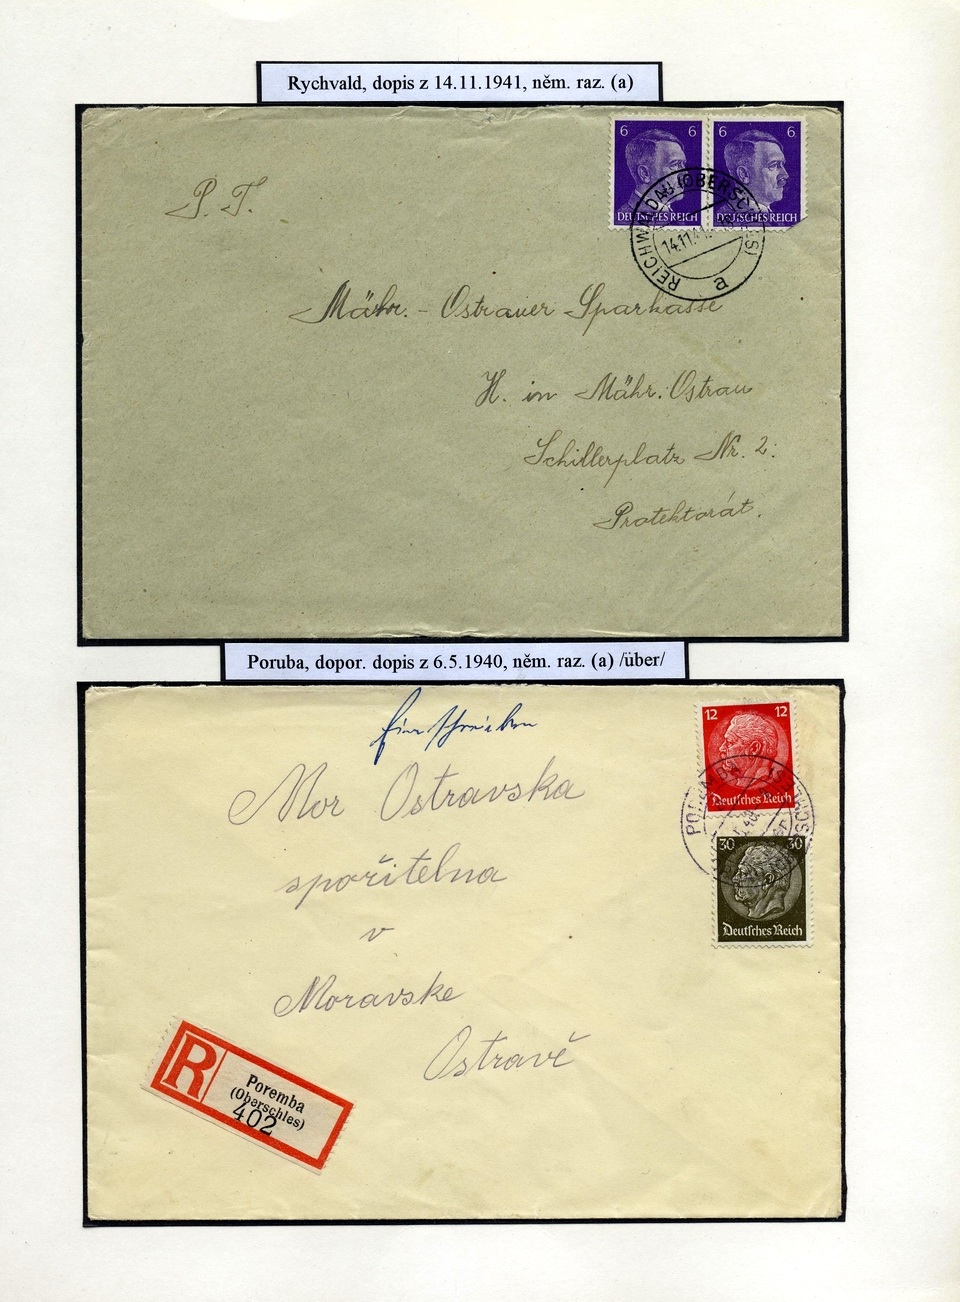 Rychvald, dopis z 14.11.1941, něm. raz. (a)
6 6 6 6
DEUTSCHES REICH DEUTSCHES REICH
REICHWALDAU (OBERSCHLES)
14.11.41
a
P. T.
Mähr. - Ostrauer Sparkasse
H. in Mähr. Ostrau
Schillerplatz Nr. 2.
Protektorát.
Poruba, dopor. dopis z 6.5.1940, něm. raz. (a) /über/
Einschreiben
12 12
Deutsches Reich
30 30
Deutsches Reich
Mor Ostravska
spořitelna
v
Moravske
Ostravě
R
Poremba
(Oberschles)
402